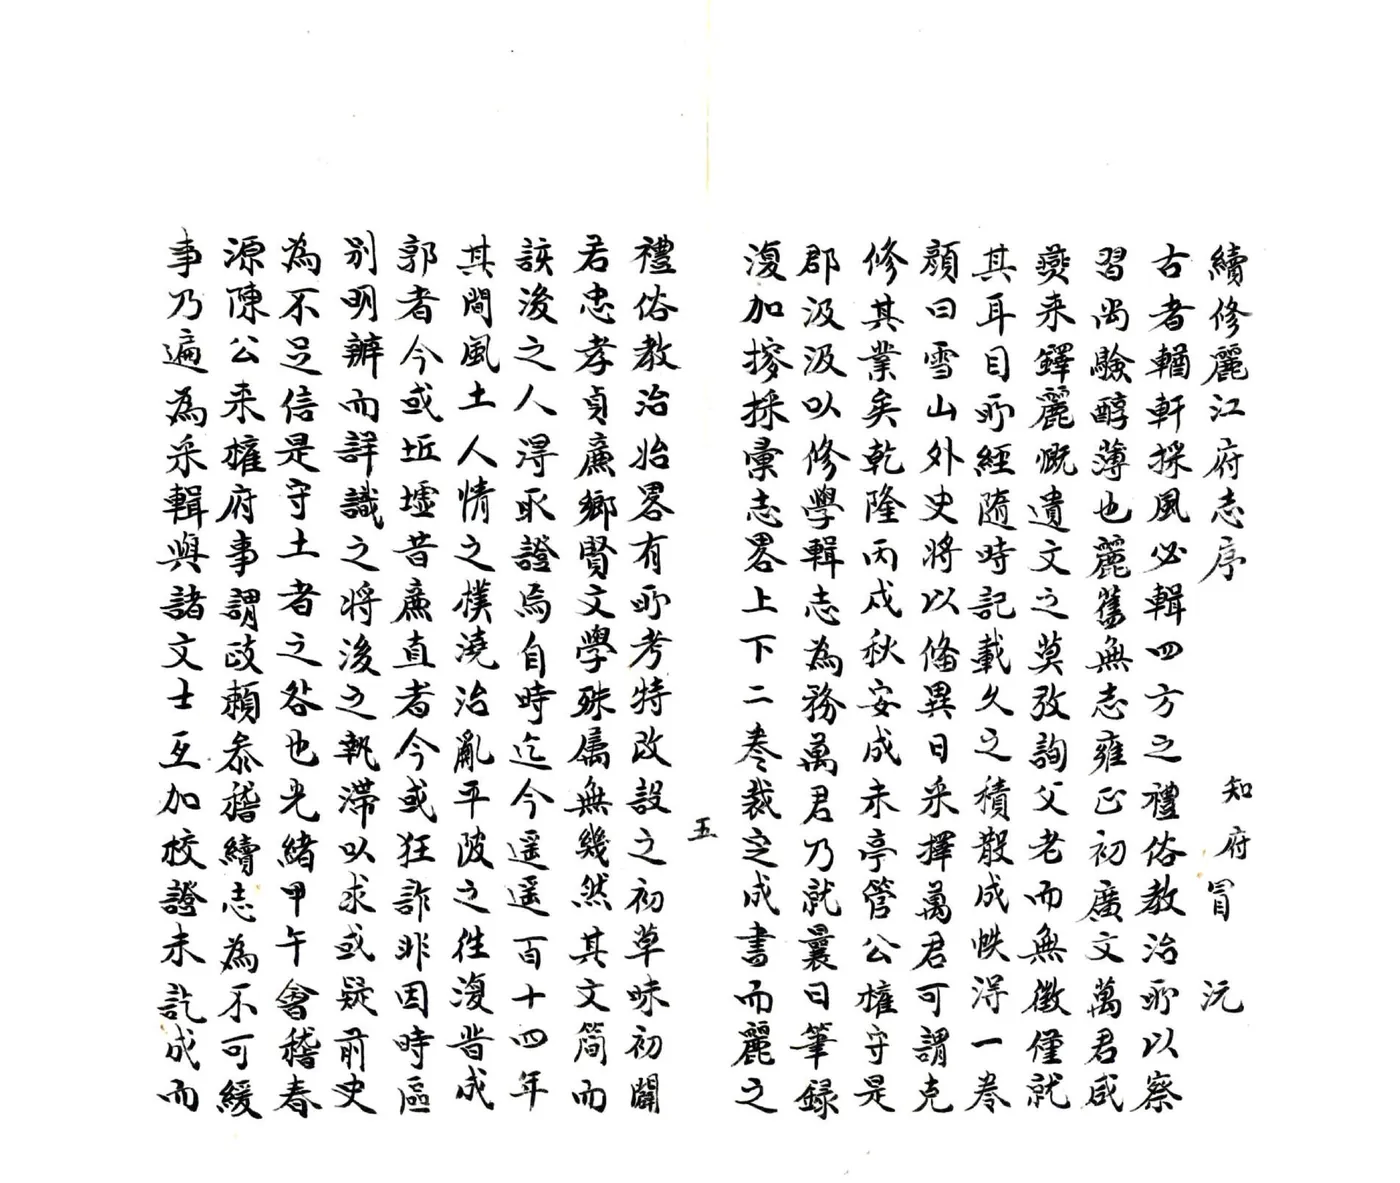 續修麗江府志序
知府冒沅
古者輶軒採風必輯四方之禮俗教治所以察
習尚驗醇薄也麗舊無志雍正初廣文萬君咸
燮来鐸麗慨遺文之莫攷詢父老而無徵僅就
其耳目所經隨時記載久之積散成帙淂一卷
顏曰雪山外史將以備異日采擇萬君可謂克
修其業矣乾隆丙戍秋安成未亭管公権守是
郡汲汲以修學輯志為務萬君乃就曩日筆録
復加搜採彙志畧上下二卷裁定成書而麗之
五
禮俗教治始畧有所考特改設之初草昧初闢
若忠孝貞廉鄉賢文學殊属無幾然其文简而
該後之人淂取證焉自時迄今遥遥百十四年
其間風土人情之樸澆治亂平陂之徃復皆成
郭者今或坵墟昔廉直者今或狂詐非因時區
別明辨而詳識之將後之執滯以求或疑前史
為不足信是守土者之咎也光緒甲午會稽春
源陳公来権府事謂政頼叅稽續志為不可緩
事乃遍為采輯與諸文士互加校證未訖成而